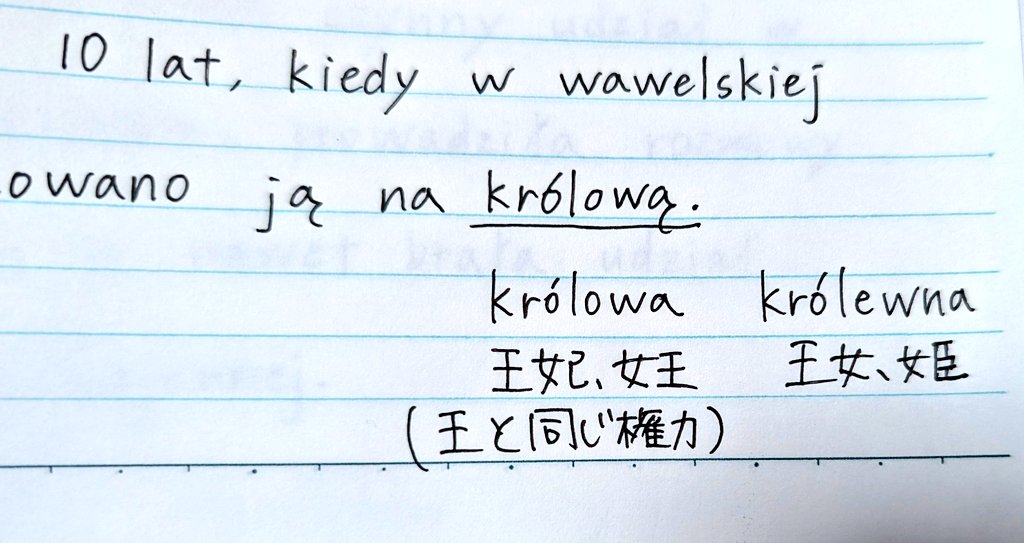 10 lat, kiedy w wawelskiej
owano ją na królową.
królowa królewna
王妃、女王 王女、姫
(王と同じ権力)